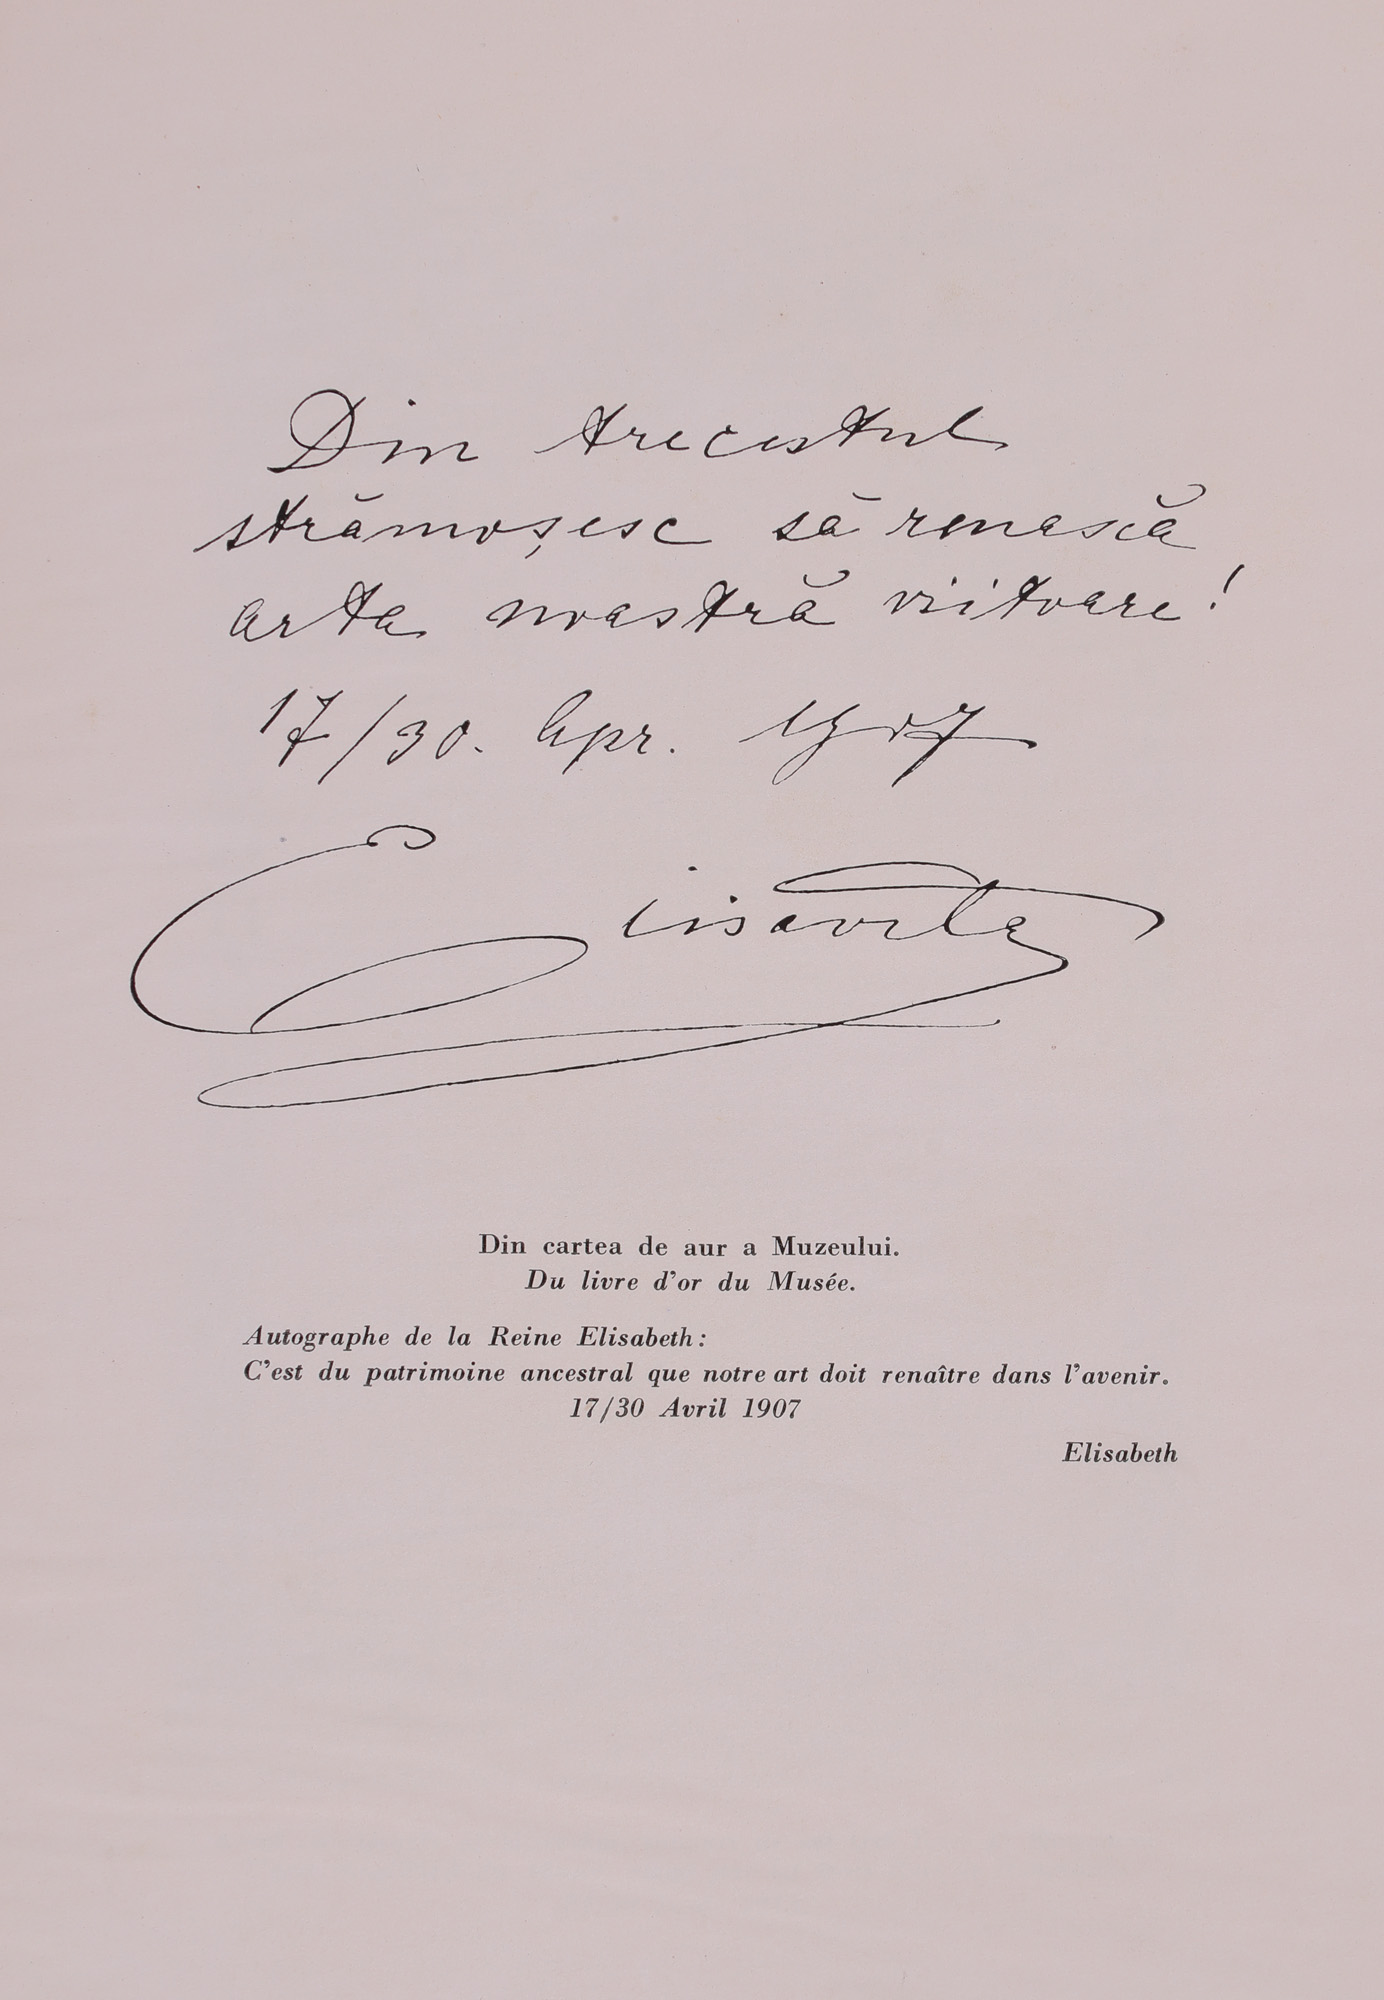 Din trecutul
strămoșesc să renască
arta noastră viitoare!
17/30. Apr. 1907
Elisaveta
Din cartea de aur a Muzeului.
Du livre d'or du Musée.
Autographe de la Reine Elisabeth:
C'est du patrimoine ancestral que notre art doit renaître dans l'avenir.
17/30 Avril 1907
Elisabeth